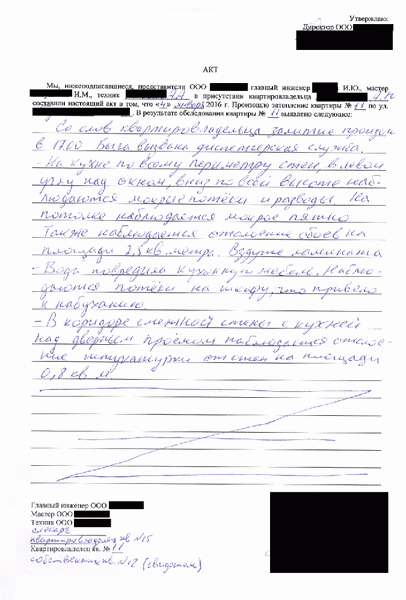 Утверждаю:
Директор ООО
АКТ
Мы, нижеподписавшиеся, представители ООО главный инженер И.Ю., мастер
И.М., техник в присутствии квартировладельца
составили настоящий акт в том, что «4» января 2016 г. Произошло затопление квартиры № 11 по ул.
. В результате обследования квартиры № 11 выявлено следующее:
Со слов квартировладельца залитие произошло
в 17.00 Была вызвана диспетчерская служба.
- На кухне по всему периметру стен, в левом
углу над окном, вниз по всей высоте наб-
людаются мокрые потёки и разводы На
потолке наблюдается мокрое пятно
Также наблюдается отслоение обоев на
площади 2,5 кв. метра. Вздутие ламината
- Вода повредила кухонную мебель. Наблю-
даются потёки на шкафу, что привело
к набуханию.
- В коридоре смежной стены с кухней
над дверным проёмом наблюдается отслое-
ние штукатурки от стен на площади
0,8 кв м
Главный инженер ООО
Мастер ООО
Техник ООО
слесарь
квартировладелец кв. №15
Квартировладелец кв. № 11
собственник кв. №12 (свидетель)